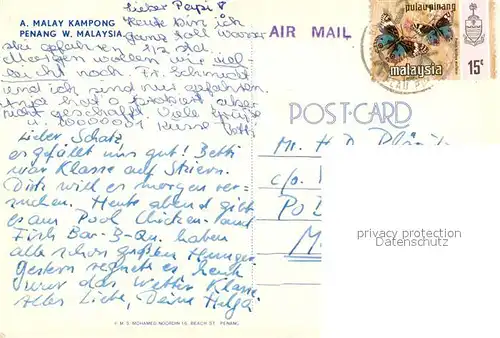 A. MALAY KAMPONG
PENANG W. MALAYSIA
Lieber Papi!
Heute bin ich
ganz toll Wasser
ski gefahren 1/2 Std.
Morgen wollen wir viel
leicht noch Fr. Schmidt
und ich sind nur gefahren
hat probiert aber
nicht geschafft. Viele Grüße
u. 100000001 Küsse
AIR MAIL
pulau pinang
malaysia
15c
POST-CARD
Lieber Schatz,
es gefällt uns gut! Betti
war Klasse auf Skiern.
Dirk will es morgen ver-
suchen. Heute abend gibt
es am Pool Chicken- und
Fish Bar-B-Qu. haben
alle schon großen Hunger
gestern regnete es, heute
war das Wetter Klasse
Alles Liebe, Deine Helga
Mr. H. D.
c/o.
PO
M
privacy protection
Datenschutz
MOHAMED NOORDIN 16, BEACH ST. PENANG